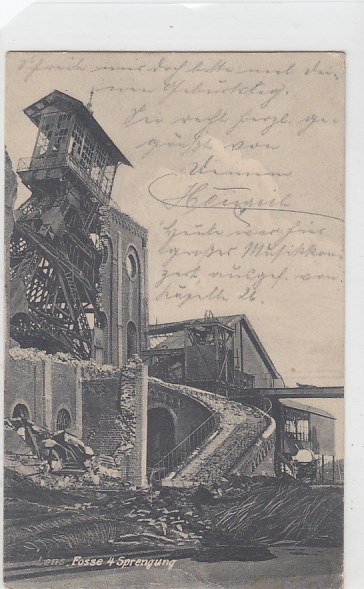 Schreib uns doch bitte mal dei-
nen Geburtstag.
Sei recht herzl. ge-
grüßt von
Deinem
Heute war hier
großes Musikkon-
zert, ausgef. von
Kapelle 26.
Lens, Fosse 4 Sprengung